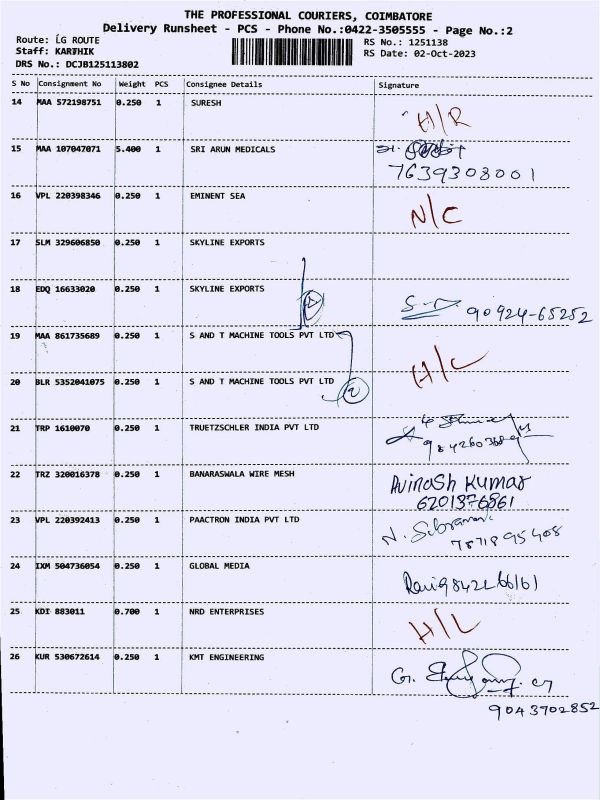 THE PROFESSIONAL COURIERS, COIMBATORE
Delivery Runsheet - PCS - Phone No.:0422-3505555 - Page No.:2
Route: LG ROUTE RS No.: 1251138
Staff: KARTHIK RS Date: 02-Oct-2023
DRS No.: DCJB125113802
S No Consignment No Weight PCS Consignee Details Signature
14 MAA 572198751 0.250 1 SURESH
H/R
15 MAA 107047071 5.400 1 SRI ARUN MEDICALS
7639308001
16 VPL 220398346 0.250 1 EMINENT SEA
N/C
17 SLM 329606850 0.250 1 SKYLINE EXPORTS
18 EDQ 16633020 0.250 1 SKYLINE EXPORTS
2
90924-65252
19 MAA 861735689 0.250 1 S AND T MACHINE TOOLS PVT LTD
H/C
20 BLR 5352041075 0.250 1 S AND T MACHINE TOOLS PVT LTD
2
21 TRP 1610070 0.250 1 TRUETZSCHLER INDIA PVT LTD
22 TRZ 320016378 0.250 1 BANARASWALA WIRE MESH
Avinash Kumar
6201376861
23 VPL 220392413 0.250 1 PAACTRON INDIA PVT LTD
7871895408
24 IXM 504736054 0.250 1 GLOBAL MEDIA
Ravi 9842266161
25 KDI 883011 0.700 1 NRD ENTERPRISES
H/L
26 KUR 530672614 0.250 1 KMT ENGINEERING
G.
9043702852